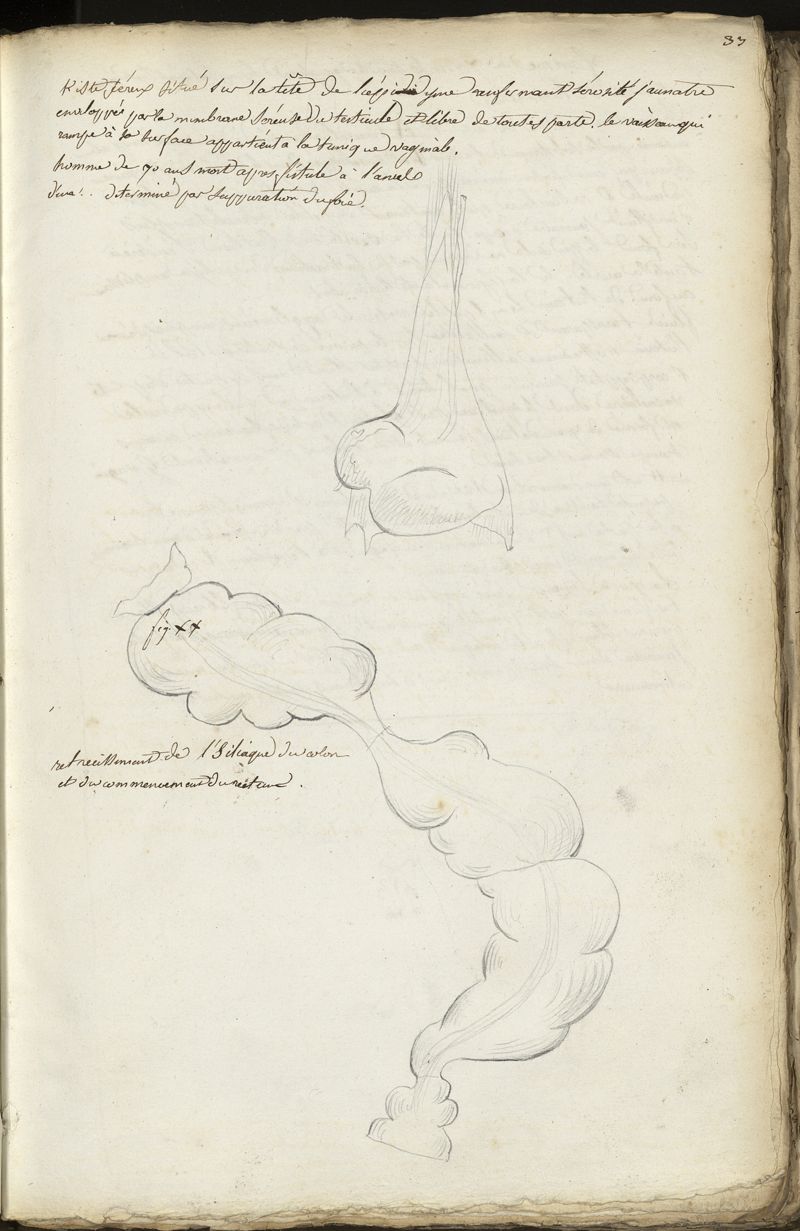 33
Kiste séreux situé sur la tête de l'épididyme renfermant sérosité jaunatre
enveloppée par la membrane séreuse du testicule et libre de toutes parts. le vaisseau qui
rampe à sa surface appartient a la tunique vaginale.
homme de 70 ans mort apres fistule à l'anus
determiné par suppuration du foie.
fig. ++
retrecissement de l'iliaque du colon
et du commencement du rectum.